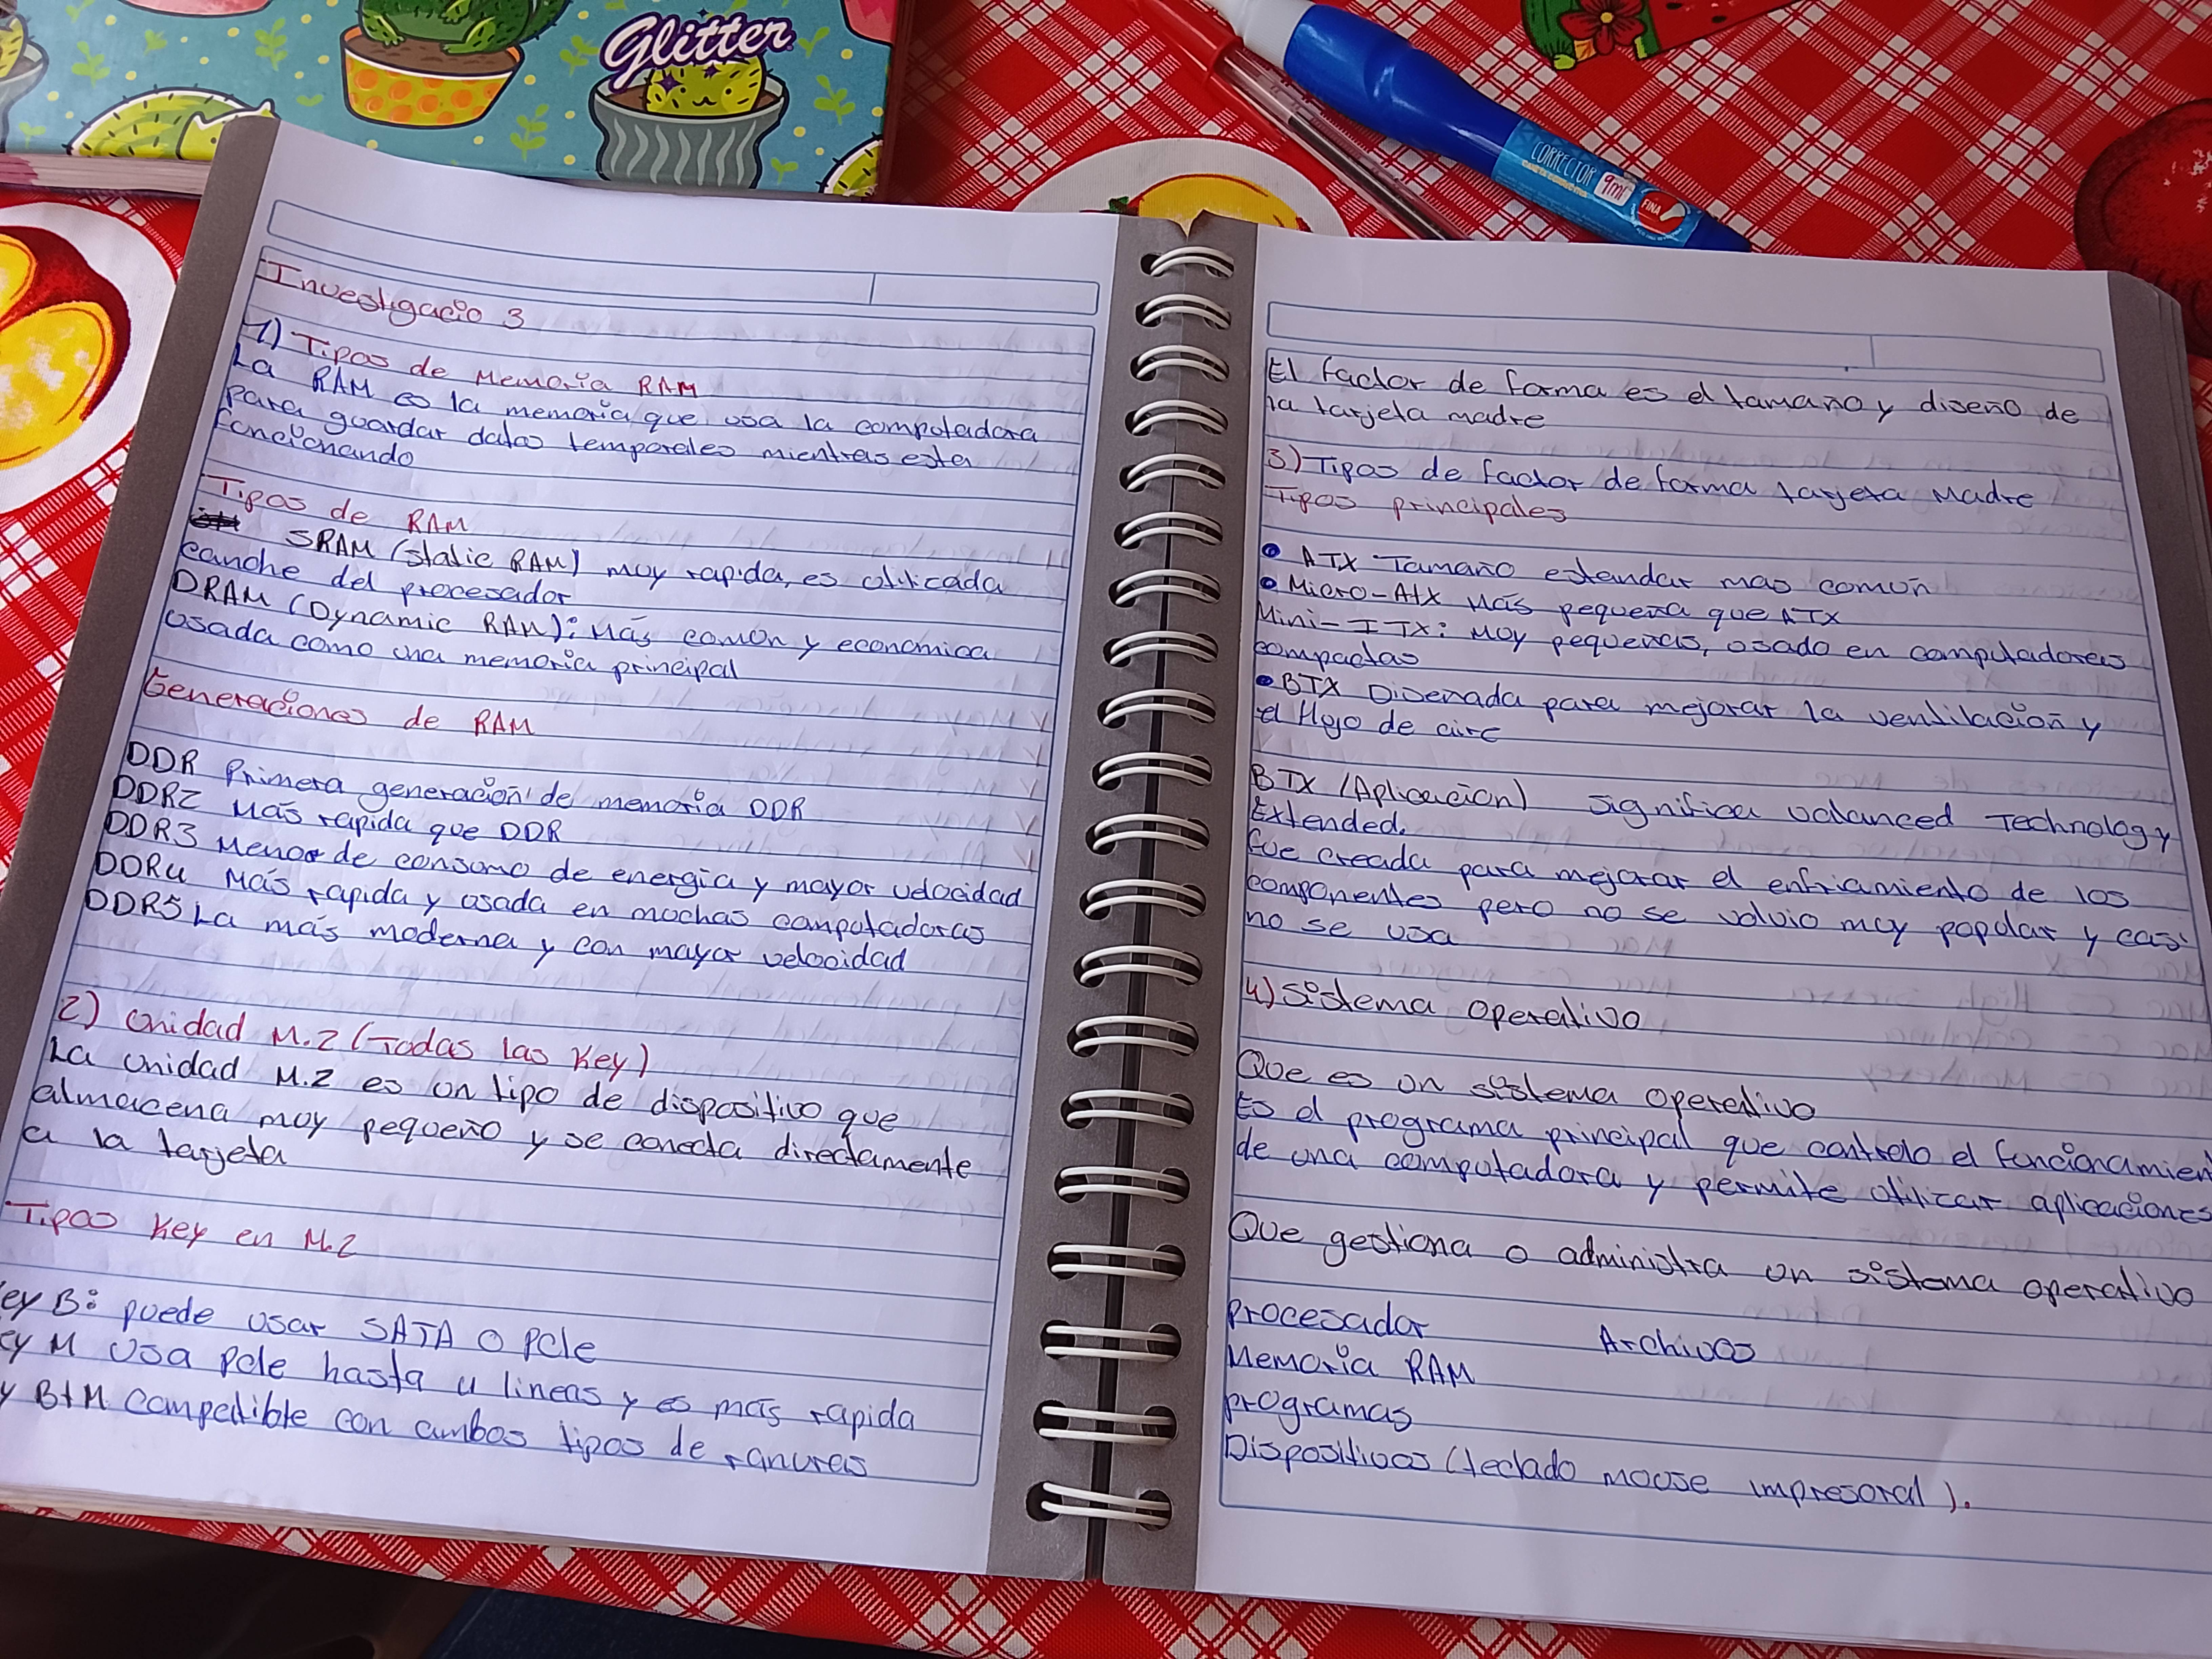 Glitter
CORRECTOR
9ml
FINA
Investigacio 3
1) Tipos de Memoria RAM
La RAM es la memoria que usa la computadora
para guardar datos temporales mientras esta
funcionando
Tipos de RAM
SRAM (Static RAM) muy rapida, es utilicada
canche del procesador
DRAM (Dynamic RAM): Más comon y economica
usada como una memoria principal
Generaciones de RAM
DDR Primera generación de memoria DDR
DDR2 Más rapida que DDR
DDR3 Menor de consumo de energia y mayor velocidad
DDR4 Más rapida y usada en muchas computadoras
DDR5 La más moderna y con mayor velocidad
2) Unidad M.2 (Todas las Key)
La unidad M.2 es un tipo de dispositivo que
almacena muy pequeño y se conecta directamente
a la tarjeta
Tipos Key en M.2
ey B: puede usar SATA o PCIe
ey M Usa PCIe hasta 4 lineas y es más rapida
y B+M Compatible con ambos tipos de ranuras
El factor de forma es el tamaño y diseño de
la tarjeta madre
3) Tipos de factor de forma tarjeta Madre
Tipos principales
• ATX Tamaño estandar mas común
• Micro-Atx Más pequeña que ATX
Mini-ITX: Muy pequeñas, usado en computadoras
compactas
• BTX Disenada para mejorar la ventilación y
el flujo de aire
BTX (Aplicacion) significa valanced Technology
Extended.
fue creada para mejorar el enfriamiento de los
componentes pero no se volvio muy popular y casi
no se usa
4) Sistema Operativo
Que es un sistema operativo
Es el programa principal que controla el funcionamien
de una computadora y permite utilizar aplicaciones
Que gestiona o administra un sistema operativo
Procesador Archivos
Memoria RAM
programas
Dispositivos (teclado mouse impresora).